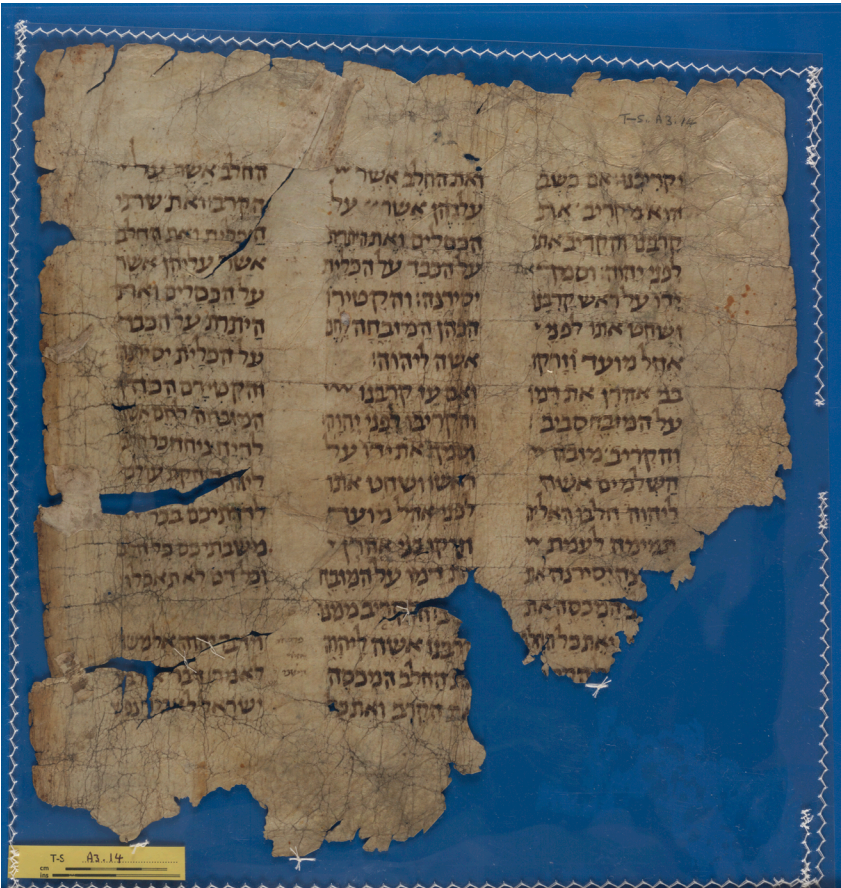 T-S. A3.14
יקריבנו אם כשב
הוא מקריב את
קרבנו והקריב אתו
לפני יהוה וסמך את
ידו על ראש קרבנו
ושחט אתו לפני
אהל מועד וזרקו
בני אהרן את דמו
על המזבח סביב
והקריב מזבח
השלמים אשה
ליהוה חלבו האליה
תמימה לעמת
יסירנה ואת
המכסה את
ואת כל החלב
ואת החלב אשר
עלהן אשר על
הכסלים ואת היתרת
על הכבד על הכלית
יסירנה והקטירו
הכהן המזבחה לחם
אשה ליהוה
ואם עז קרבנו
והקריבו לפני יהוה
וסמך את ידו על
ראשו ושחט אתו
לפני אהל מועד
וזרקו בני אהרן
את דמו על המזבח
והקריב ממנו
קרבנו אשה ליהוה
את החלב המכסה
את הקרב ואת כל
החלב אשר על
הקרב ואת שתי
הכלית ואת החלב
אשר עליהן אשר
על הכסלים ואת
היתרת על הכבד
על הכלית יסירנה
והקטירם הכהן
המזבחה לחם אשה
לריח ניחח כל חלב
ליהוה חקת עולם
לדרתיכם בכל
משבתיכם כל חלב
וכל דם לא תאכלו
וידבר יהוה אל משה
לאמר דבר אל בני
ישראל לאמר נפש
T-S A3.14